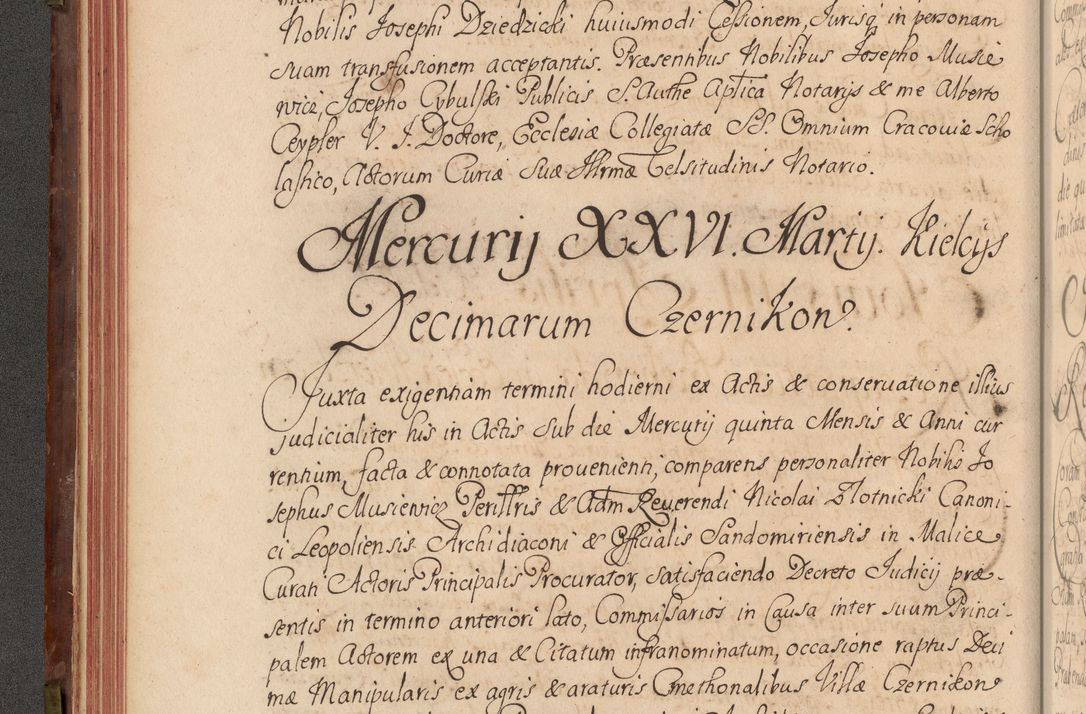 Nobilis Josephi Dziedzicki huiusmodi Cessionem, Jurisq in personam
suam transfusionem acceptantis. Præsentibus Nobilibus Josepho Musie
wicz, Josepho Cybulski Publicis S. Authe Aptica Notarijs & me Alberto
Ceypler V. J. Doctore, Ecclesiæ Collegiatæ SS. Omnium Cracoviæ Scho
lastico, Actorum Curiæ Suæ Illrmæ Celsitudinis Notario.
Mercurij XXVI. Martij. Kielcijs
Decimarum Czernikon.
Juxta exigentiam termini hodierni ex Actis & conseruatione illius
judicialiter his in Actis sub die Mercurij quinta Mensis & Anni cur
rentium, facta & connotata prouenienti, comparens personaliter Nobilis Jo
sephus Musiewicz Perillris & Adm Reuerendi Nicolai Złotnicki Canoni-
ci Leopoliensis Archidiaconi & Officialis Sandomiriensis in Malice
Curati Actoris Principalis Procurator, satisfaciendo Decreto Judicij præ-
sentis in termino anteriori lato, Commissarios in Causa inter suum Princi-
palem Actorem ex una & Citatum infranominatum, occasione raptus Deci
mæ Manipularis ex agris & araturis Cmethonalibus Villæ Czernikow